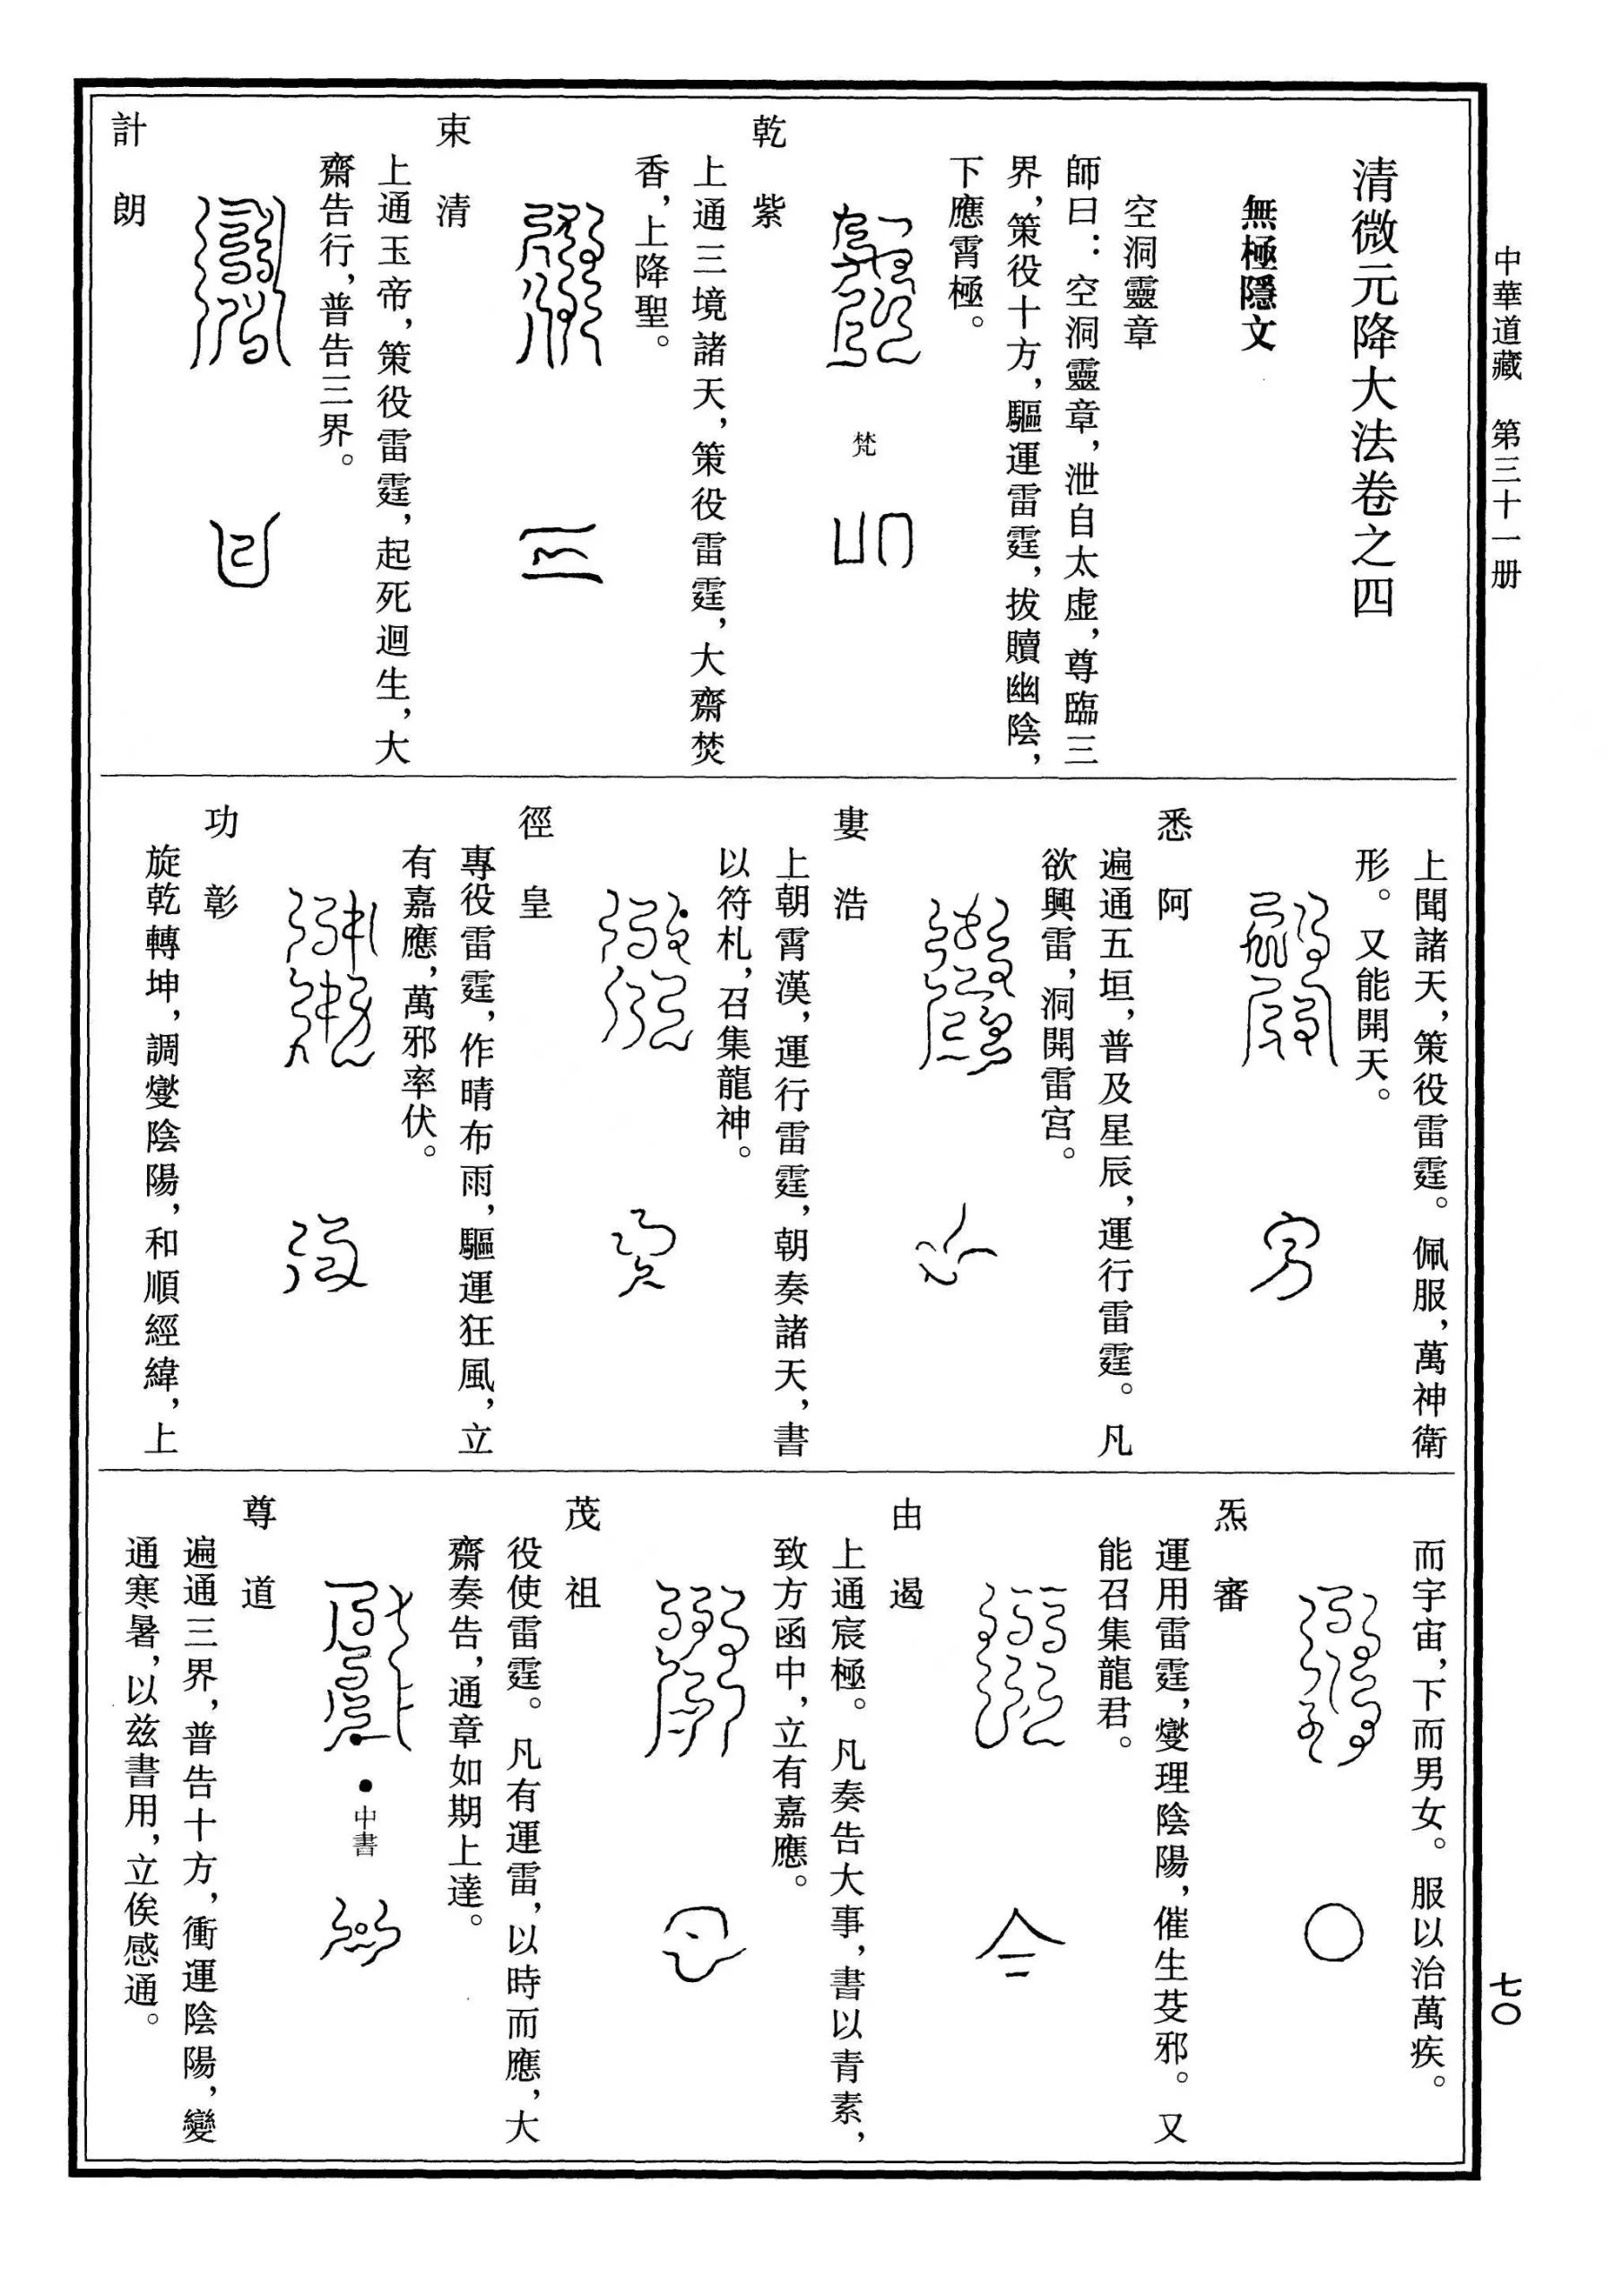 中華道藏 第三十一册
七〇
清微元降大法卷之四
無極隱文
空洞靈章
師曰：空洞靈章，泄自太虛，尊臨三
界，策役十方，驅運雷霆，拔贖幽陰，
下應霄極。
梵
乾 紫
上通三境諸天，策役雷霆，大齋焚
香，上降聖。
束 清
上通玉帝，策役雷霆，起死迴生，大
齋告行，普告三界。
計 朗
上聞諸天，策役雷霆。佩服，萬神衛
形。又能開天。
悉 阿
遍通五垣，普及星辰，運行雷霆。凡
欲興雷，洞開雷宫。
婁 浩
上朝霄漢，運行雷霆，朝奏諸天，書
以符札，召集龍神。
徑 皇
專役雷霆，作晴布雨，驅運狂風，立
有嘉應，萬邪率伏。
功 彰
旋乾轉坤，調燮陰陽，和順經緯，上
而宇宙，下而男女。服以治萬疾。
炁 審
運用雷霆，燮理陰陽，催生芟邪。又
能召集龍君。
由 遏
上通宸極。凡奏告大事，書以青素，
致方函中，立有嘉應。
茂 祖
役使雷霆。凡有運雷，以時而應，大
齋奏告，通章如期上達。
中書
尊 道
遍通三界，普告十方，衝運陰陽，變
通寒暑，以兹書用，立俟感通。